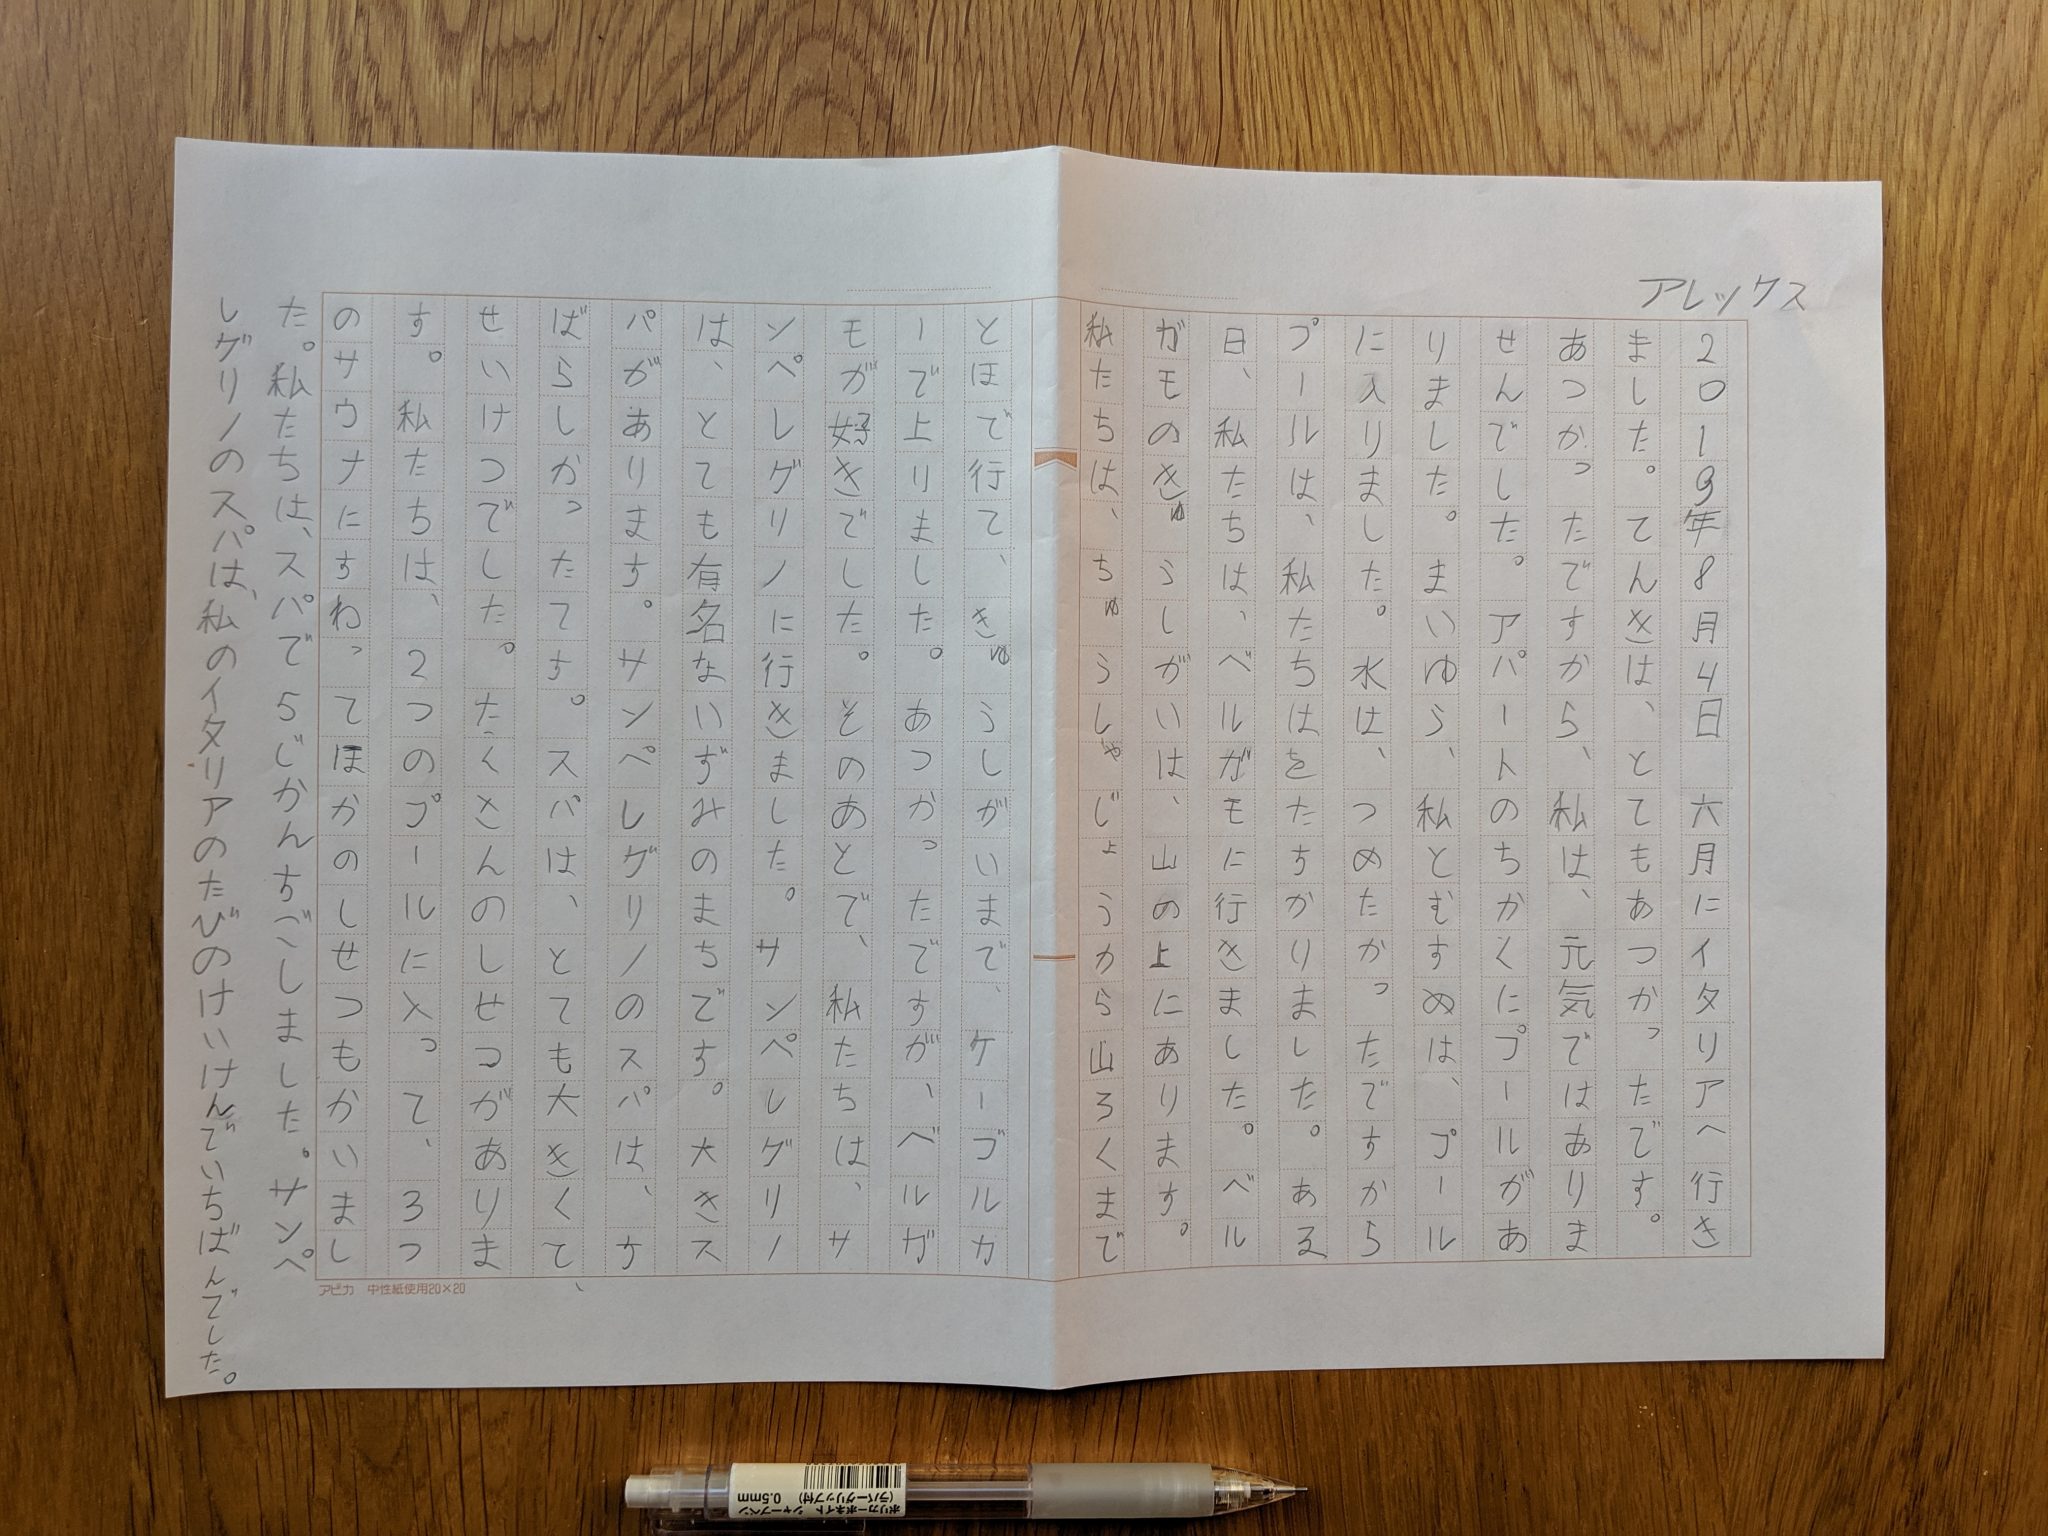 アレックス
2019年8月4日 六月にイタリアへ行き
ました。てんきは、とてもあつかったです。
あつかったですから、私は、元気ではありま
せんでした。アパートのちかくにプールがあ
りました。まいゆら、私とむすめは、プール
に入りました。水は、つめたかったですから
プールは、私たちはをたすかりました。ある
日、私たちは、ベルガモに行きました。ベル
ガモのきゅうしがいは、山の上にあります。
私たちは、ちゅうしゃじょうから山ろくまで
とほで行て、きゅうしがいまで、ケーブルカ
ーで上りました。あつかったですが、ベルガ
モが好きでした。そのあとで、私たちは、サ
ンペレグリノに行きました。サンペレグリノ
は、とても有名ないずみのまちです。大きス
パがあります。サンペレグリノのスパは、す
ばらしかったてす。スパは、とても大きくて、
せいけつでした。たくさんのしせつがありま
す。私たちは、2つのプールに入って、3つ
のサウナにすわってほかのしせつもかいまし
た。私たちは、スパで5じかんすごしました。サンペ
レグリノのスパは、私のイタリアのたびのけいけんでいちばんでした。
アピカ 中性紙使用20×20
ポリカーボネイト シャープペン
(ラバーグリップ付) 0.5mm